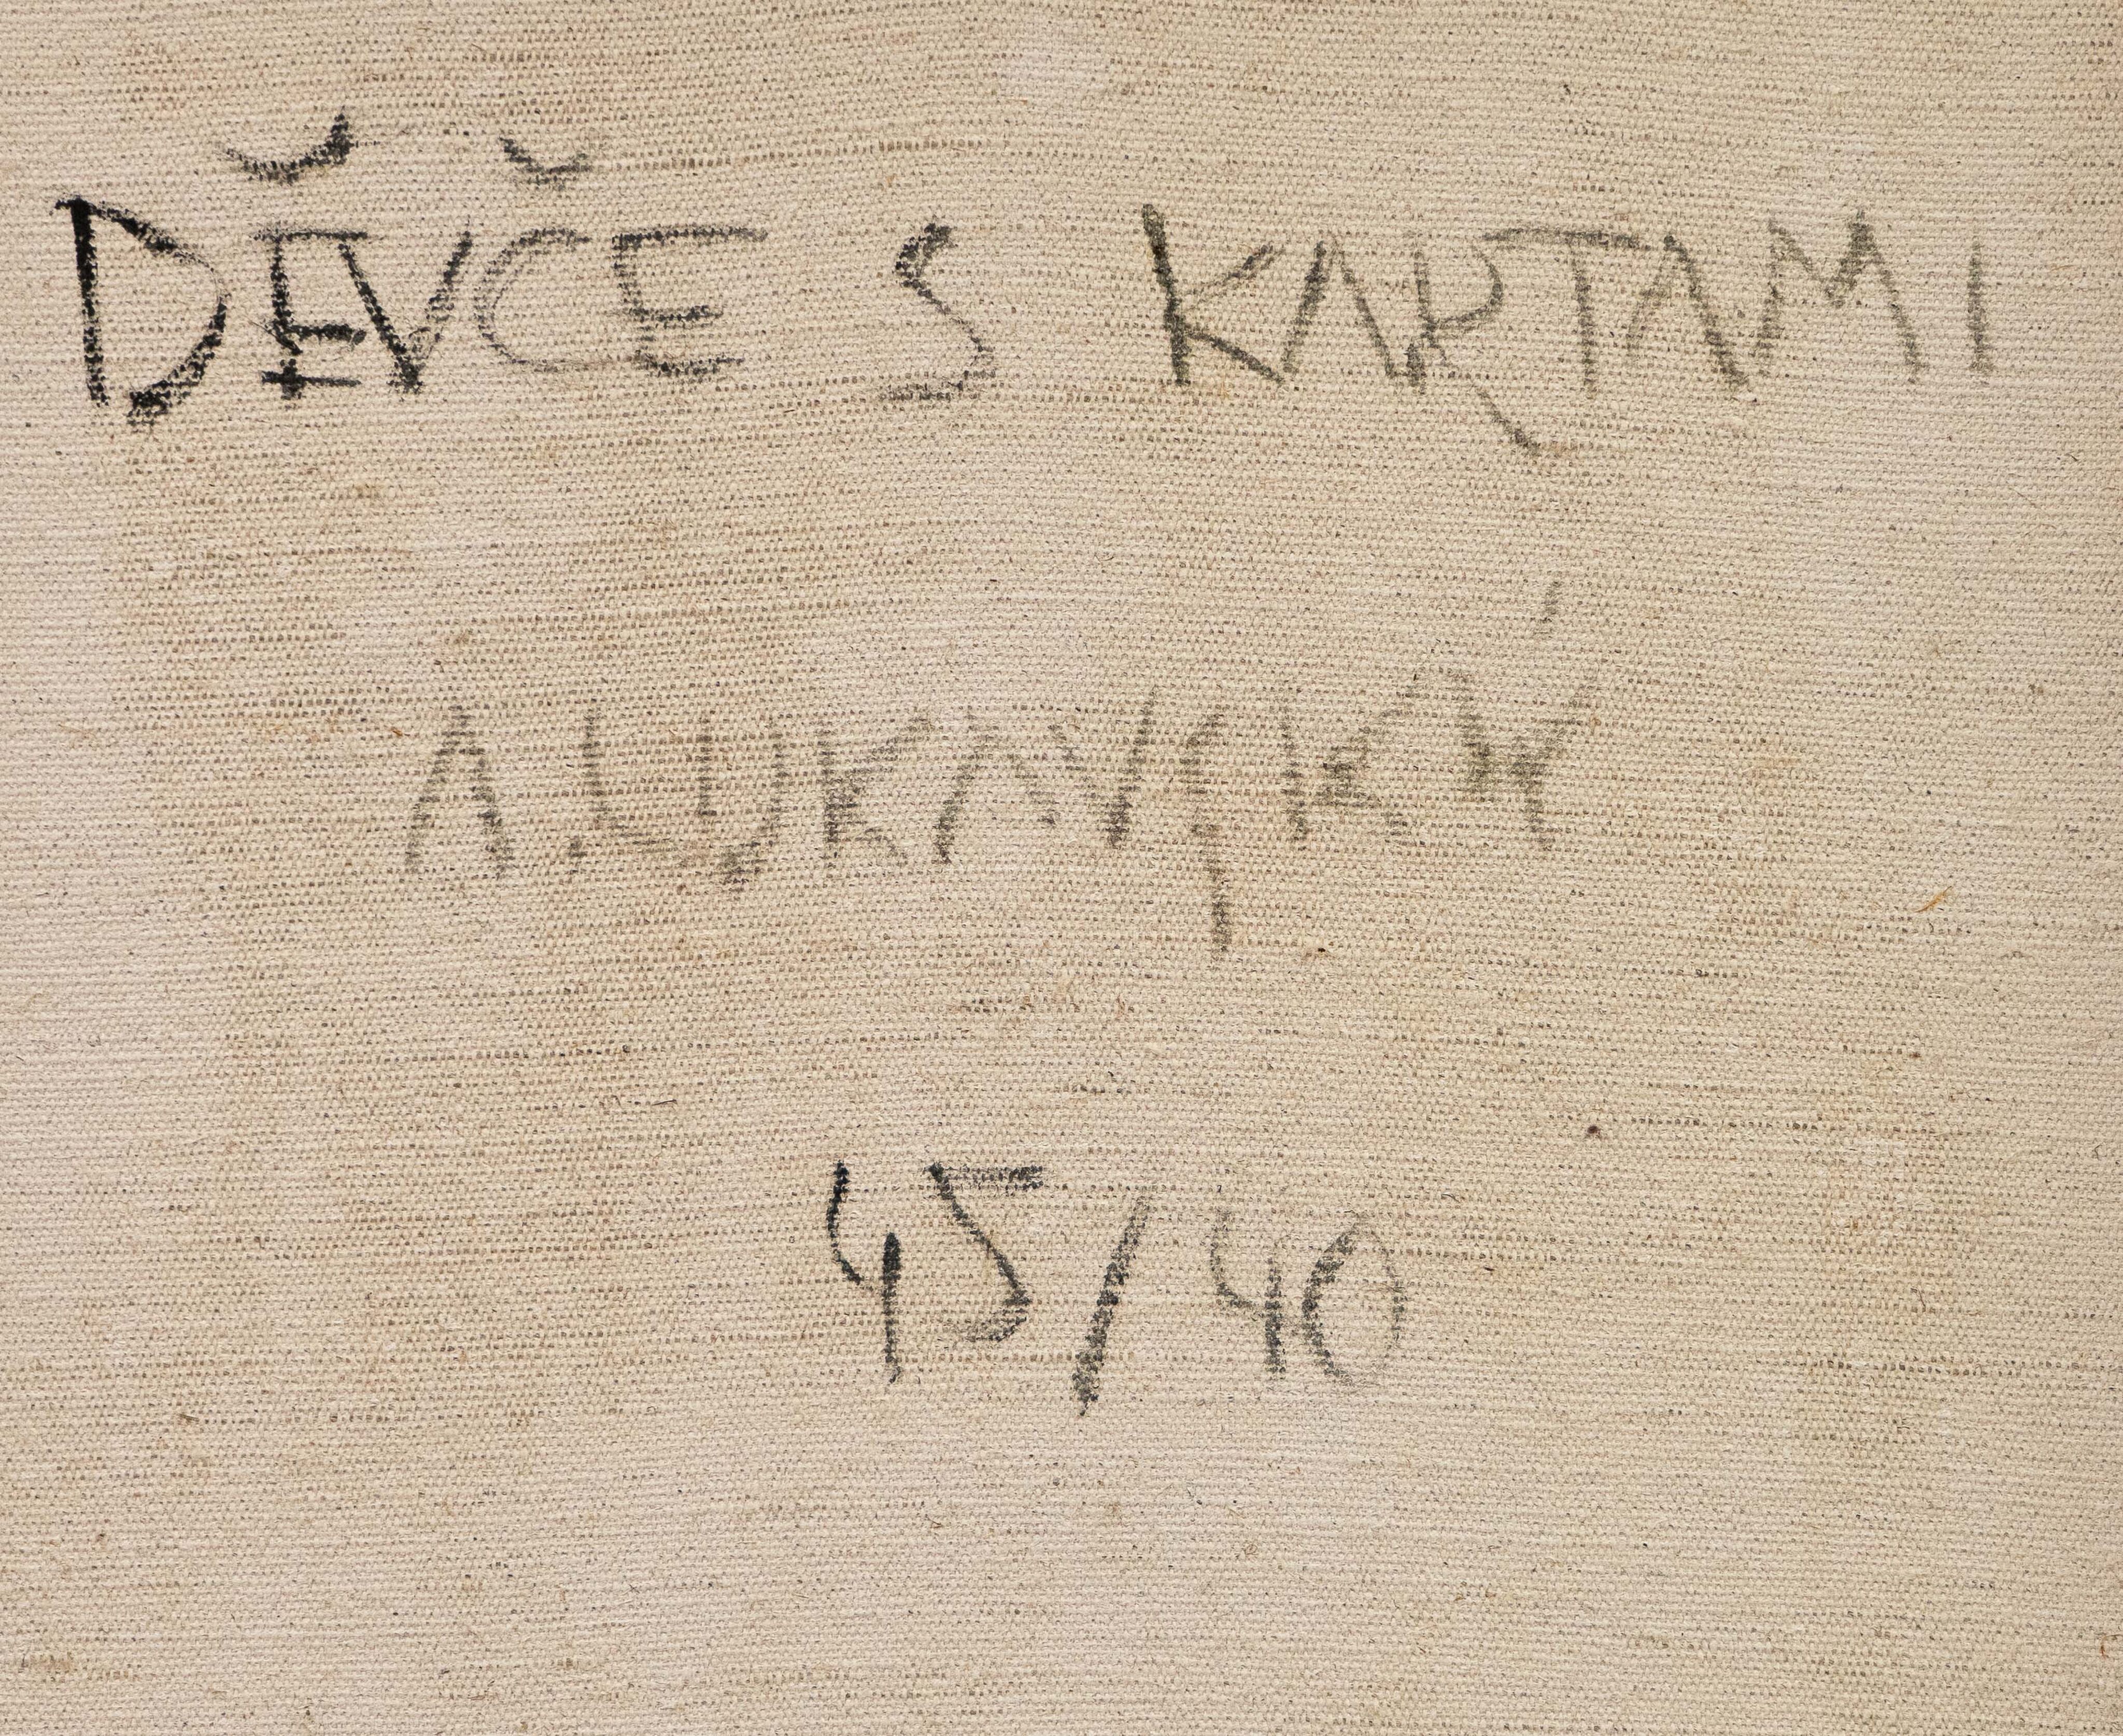 DĚVČE S KARTAMI
A. LUKAVSKÝ
45/40